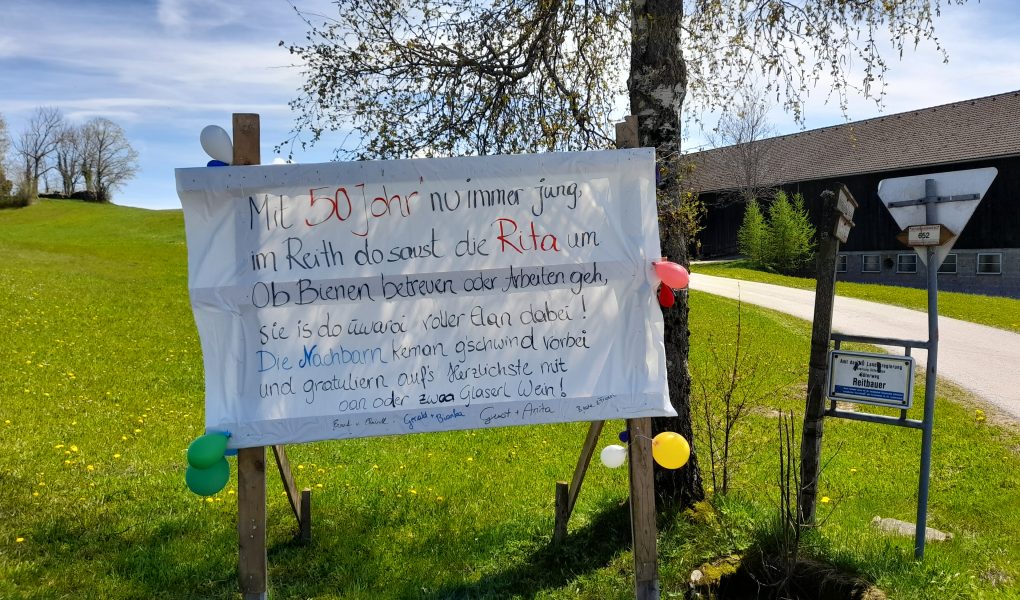 Mit 50 Johr' nu immer jung,
im Reith do saust die Rita um
Ob Bienen betreuen oder Arbeiten geh,
sie is do üwaroi voller Elan dabei!
Die Nachbarn keman g'schwind vorbei
und gratuliern auf's Herzlichste mit
oan oder zwoa Glaserl Wein!
Gerald + Bianka Gernot + Anita
652
Amt der NÖ Landesregierung
Güterweg
Reitbauer